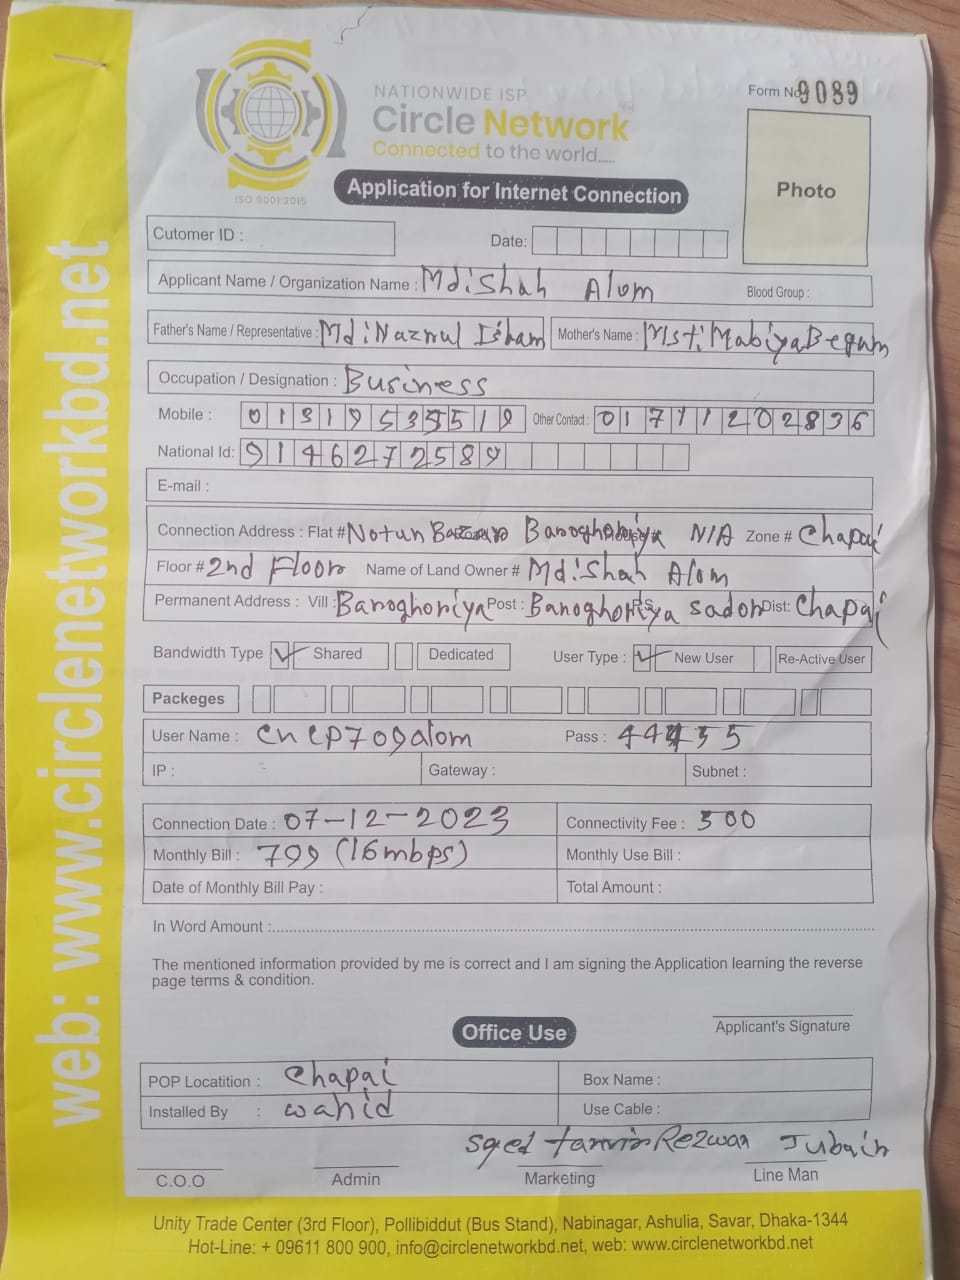 NATIONWIDE ISP
Circle Network
Connected to the world.....
ISO 9001:2015
Form No 9089
Photo
Application for Internet Connection
Cutomer ID :
Date:
Applicant Name / Organization Name : Md: Shah Alom Blood Group :
Father's Name / Representative : Md: Nazmul Isham Mother's Name : Mst: Mabiya Begum
Occupation / Designation : Business
Mobile : Other Contact : 01711202836
National Id: 9146272589
E-mail :
Connection Address : Flat # Notun Bazar Baroghoriya N/A Zone # Chapai
Floor # 2nd Floor Name of Land Owner # Md: Shah Alom
Permanent Address : Vill : Baroghoriya Post : Baroghoriya PS sador Dist: Chapai
Bandwidth Type Shared Dedicated User Type : New User Re-Active User
Packeges
User Name : cncp709alom Pass :
IP : Gateway : Subnet :
Connection Date : 07-12-2023 Connectivity Fee : 500
Monthly Bill : 799 (16mbps) Monthly Use Bill :
Date of Monthly Bill Pay : Total Amount :
In Word Amount :
The mentioned information provided by me is correct and I am signing the Application learning the reverse
page terms & condition.
Applicant's Signature
Office Use
POP Locatition : Chapai Box Name :
Installed By : wahid Use Cable :
Syed tanvir Rezwan Jubair
C.O.O Admin Marketing Line Man
Unity Trade Center (3rd Floor), Pollibiddut (Bus Stand), Nabinagar, Ashulia, Savar, Dhaka-1344
Hot-Line: + 09611 800 900, info@circlenetworkbd.net, web: www.circlenetworkbd.net
web: www.circlenetworkbd.net